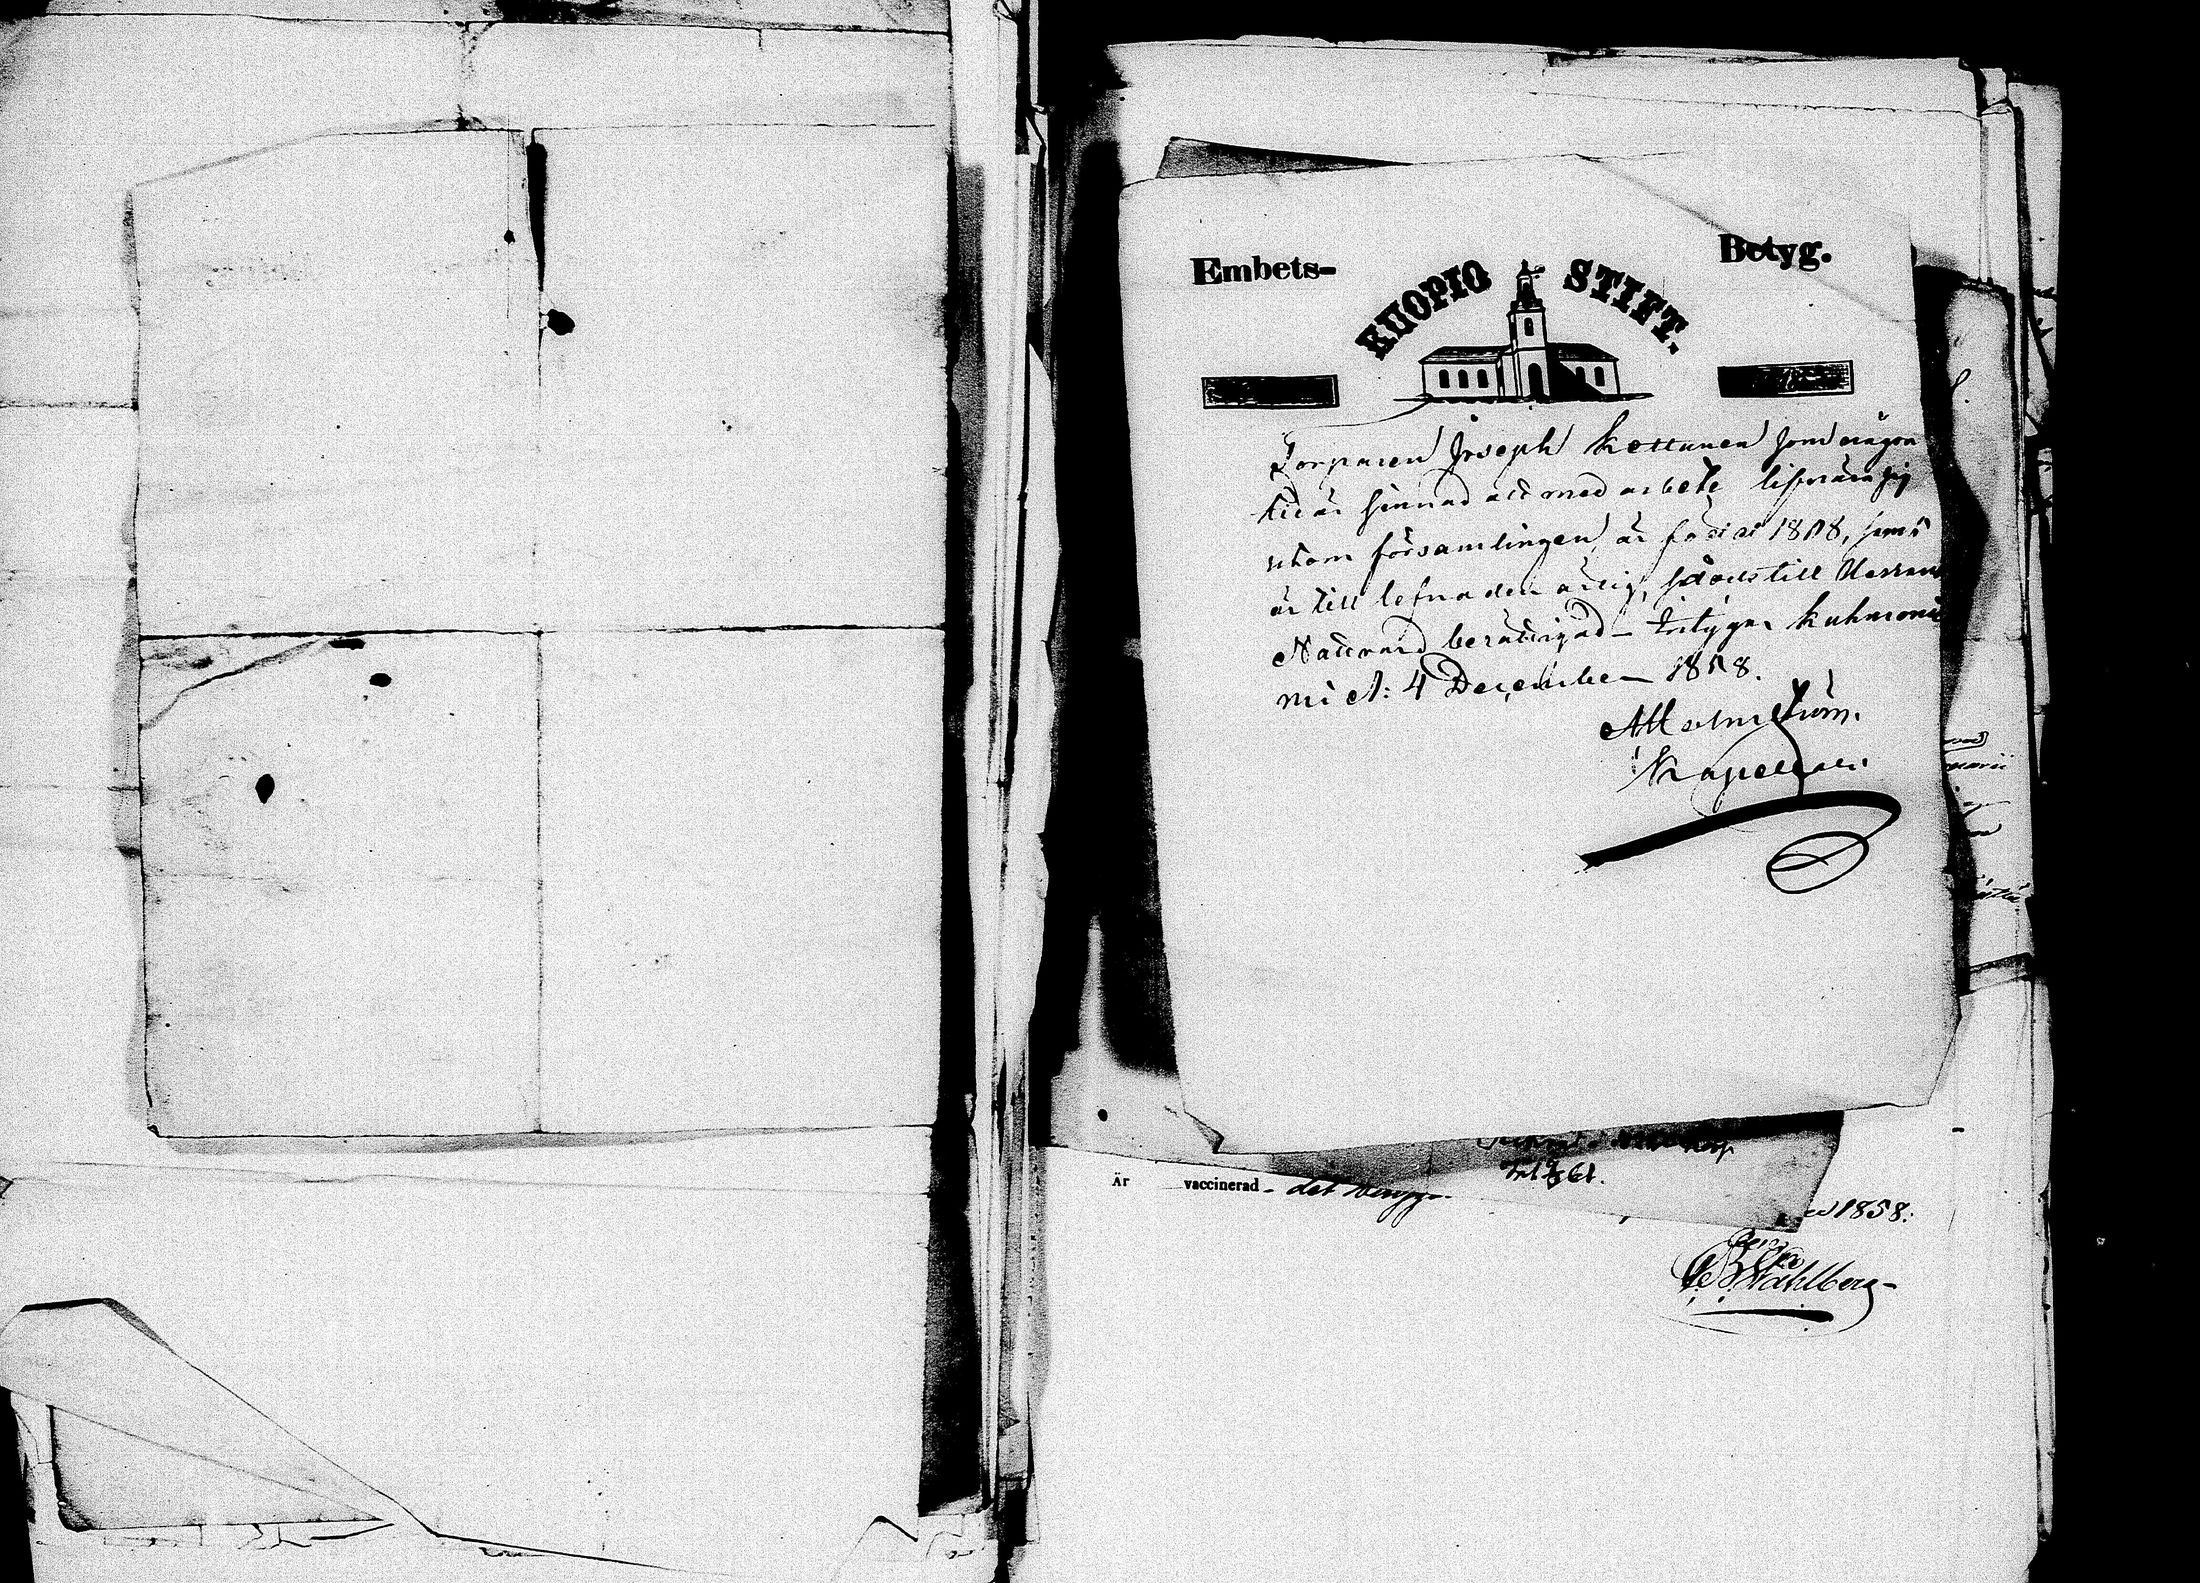 Embets-
Betyg.
KUOPIO STIFT.
Torparen Joseph Kettunen som någon
tid är sinnad att med arbete lifnära sig
utom församlingen, är född 1818, samt
är till lefnaden ärlig, såväl till Herrans
Nattvard berättigad - intygar Kuhmonie-
mi d: 4 December 1858.
A Malmström.
Kapellan.
Är vaccinerad - det
1858.
Wahlberg